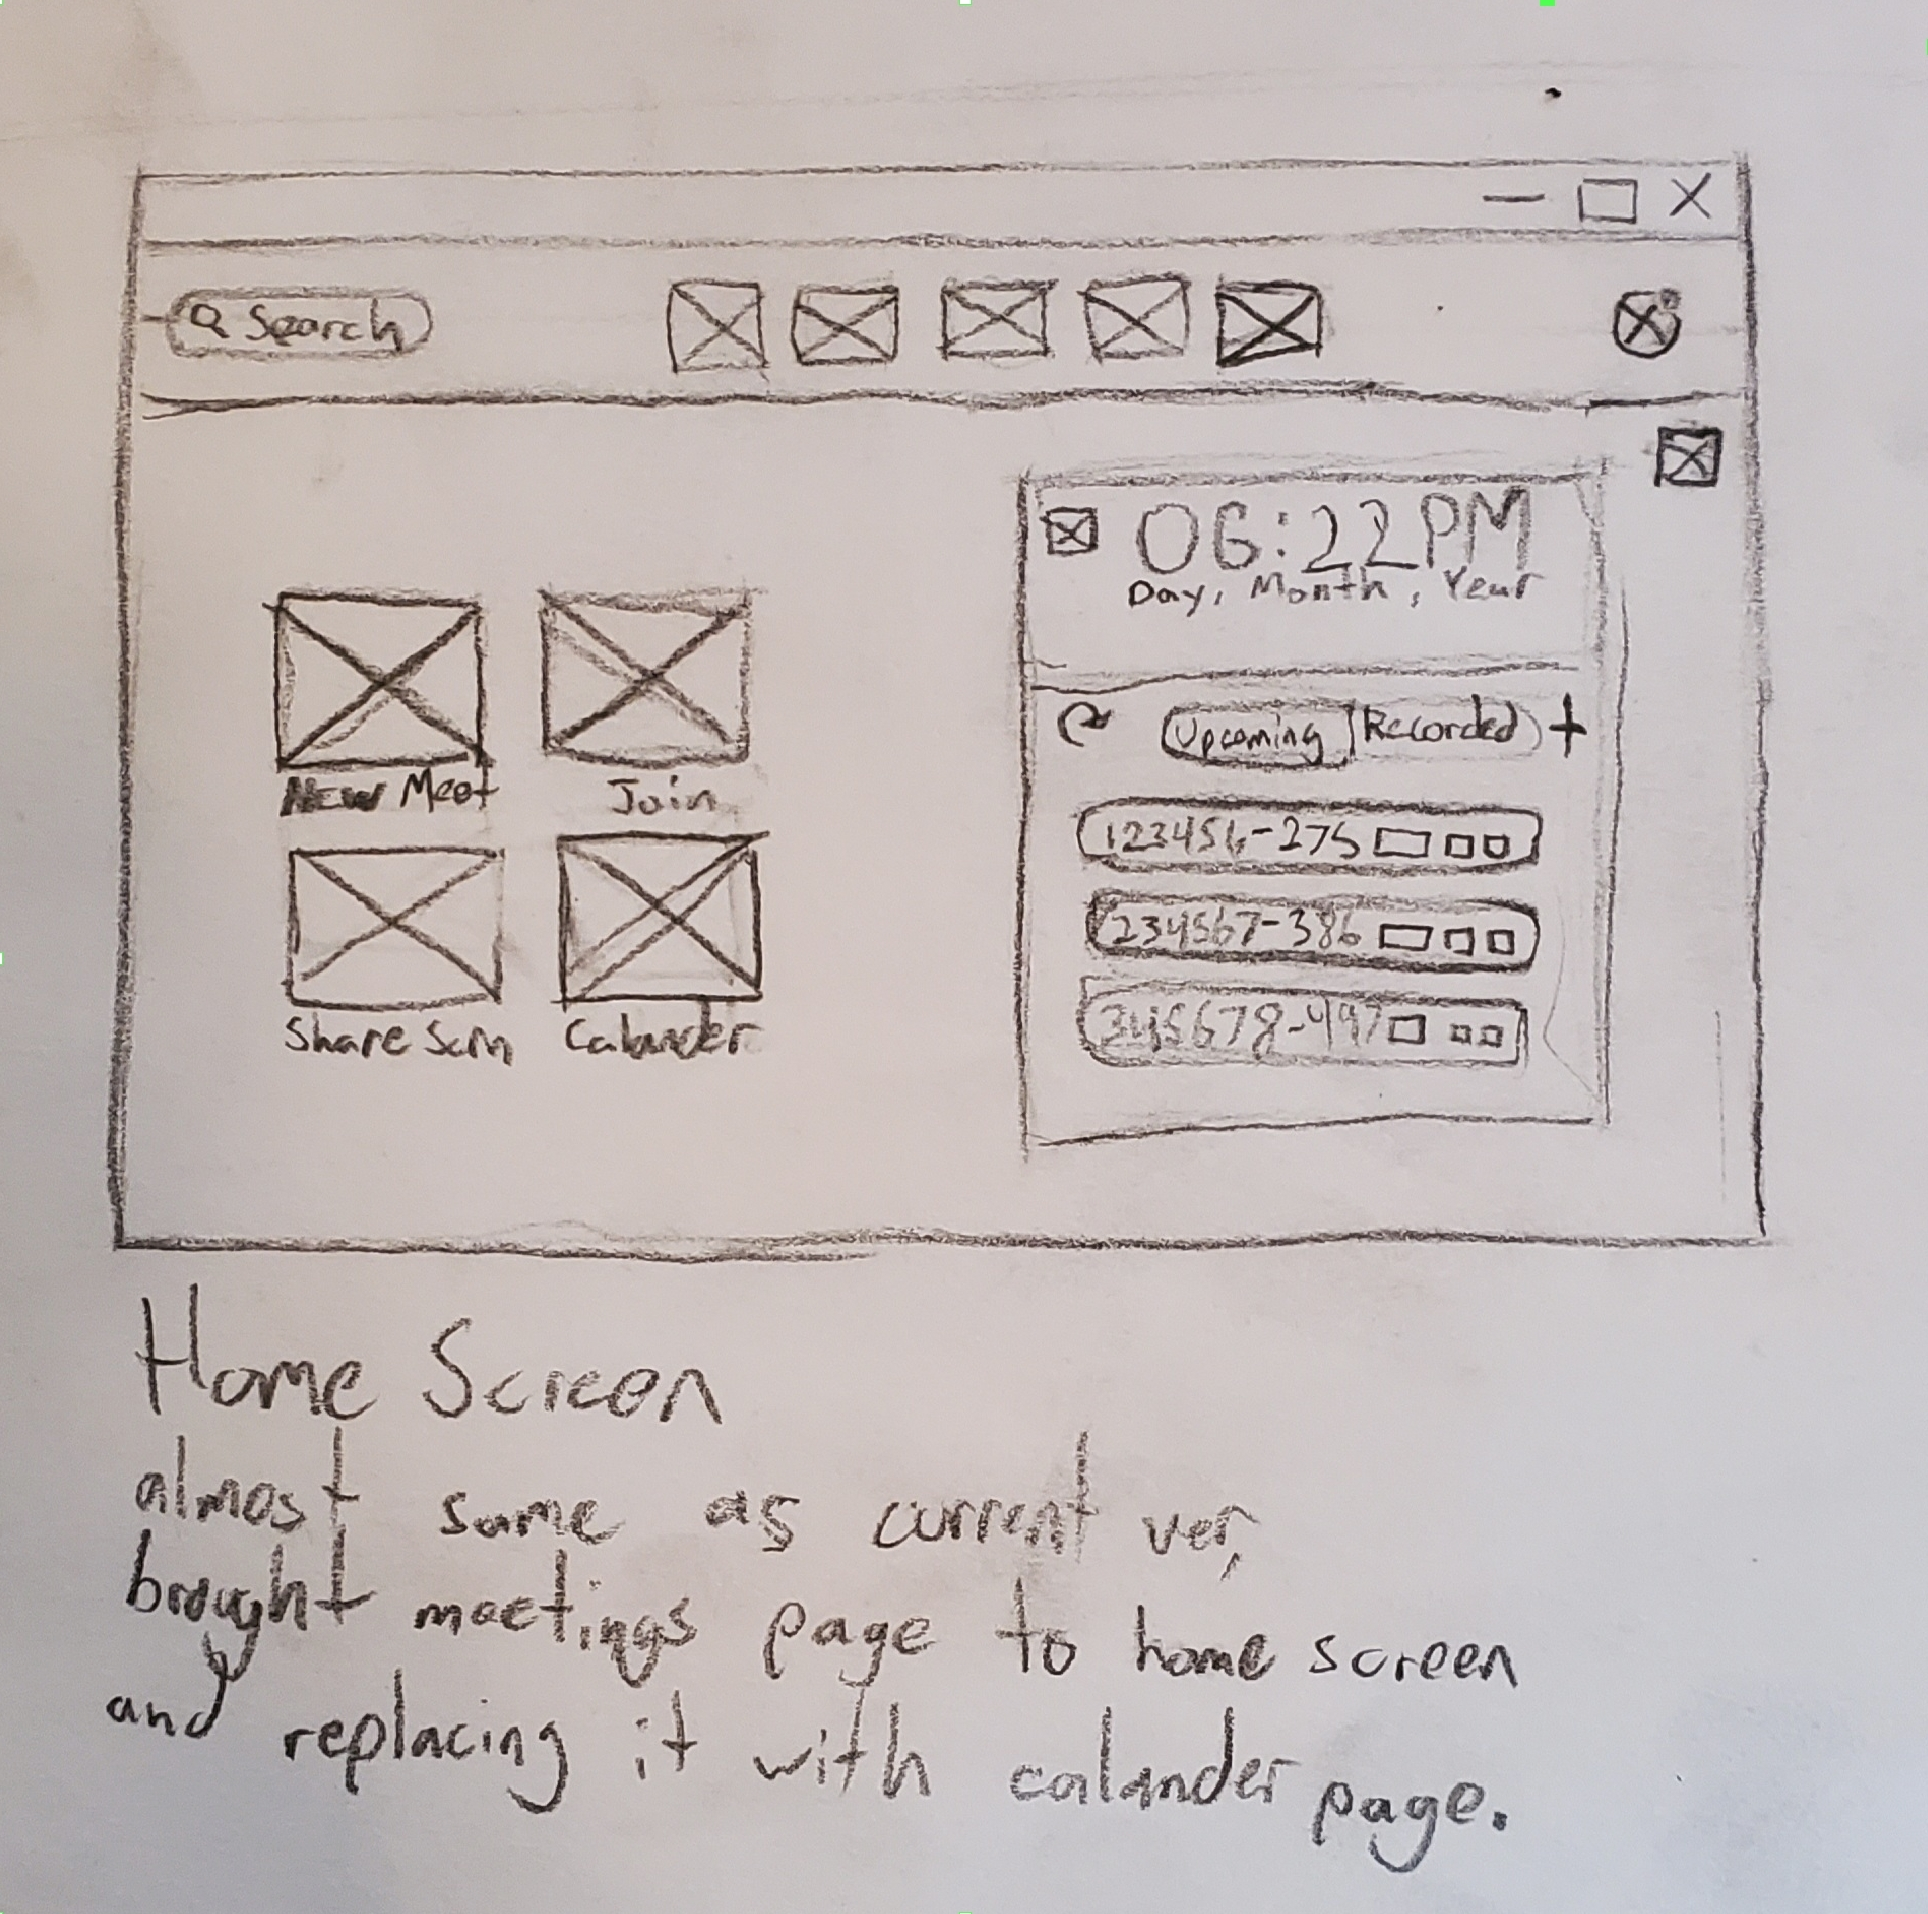 Search
06:22PM
Day, Month, Year
Upcoming Recorded +
New Meet Join
123456-275
234567-386
345678-497
Share Scrn Calander
Home Screen
almost same as current ver,
brought meetings page to home screen
and replacing it with calander page.